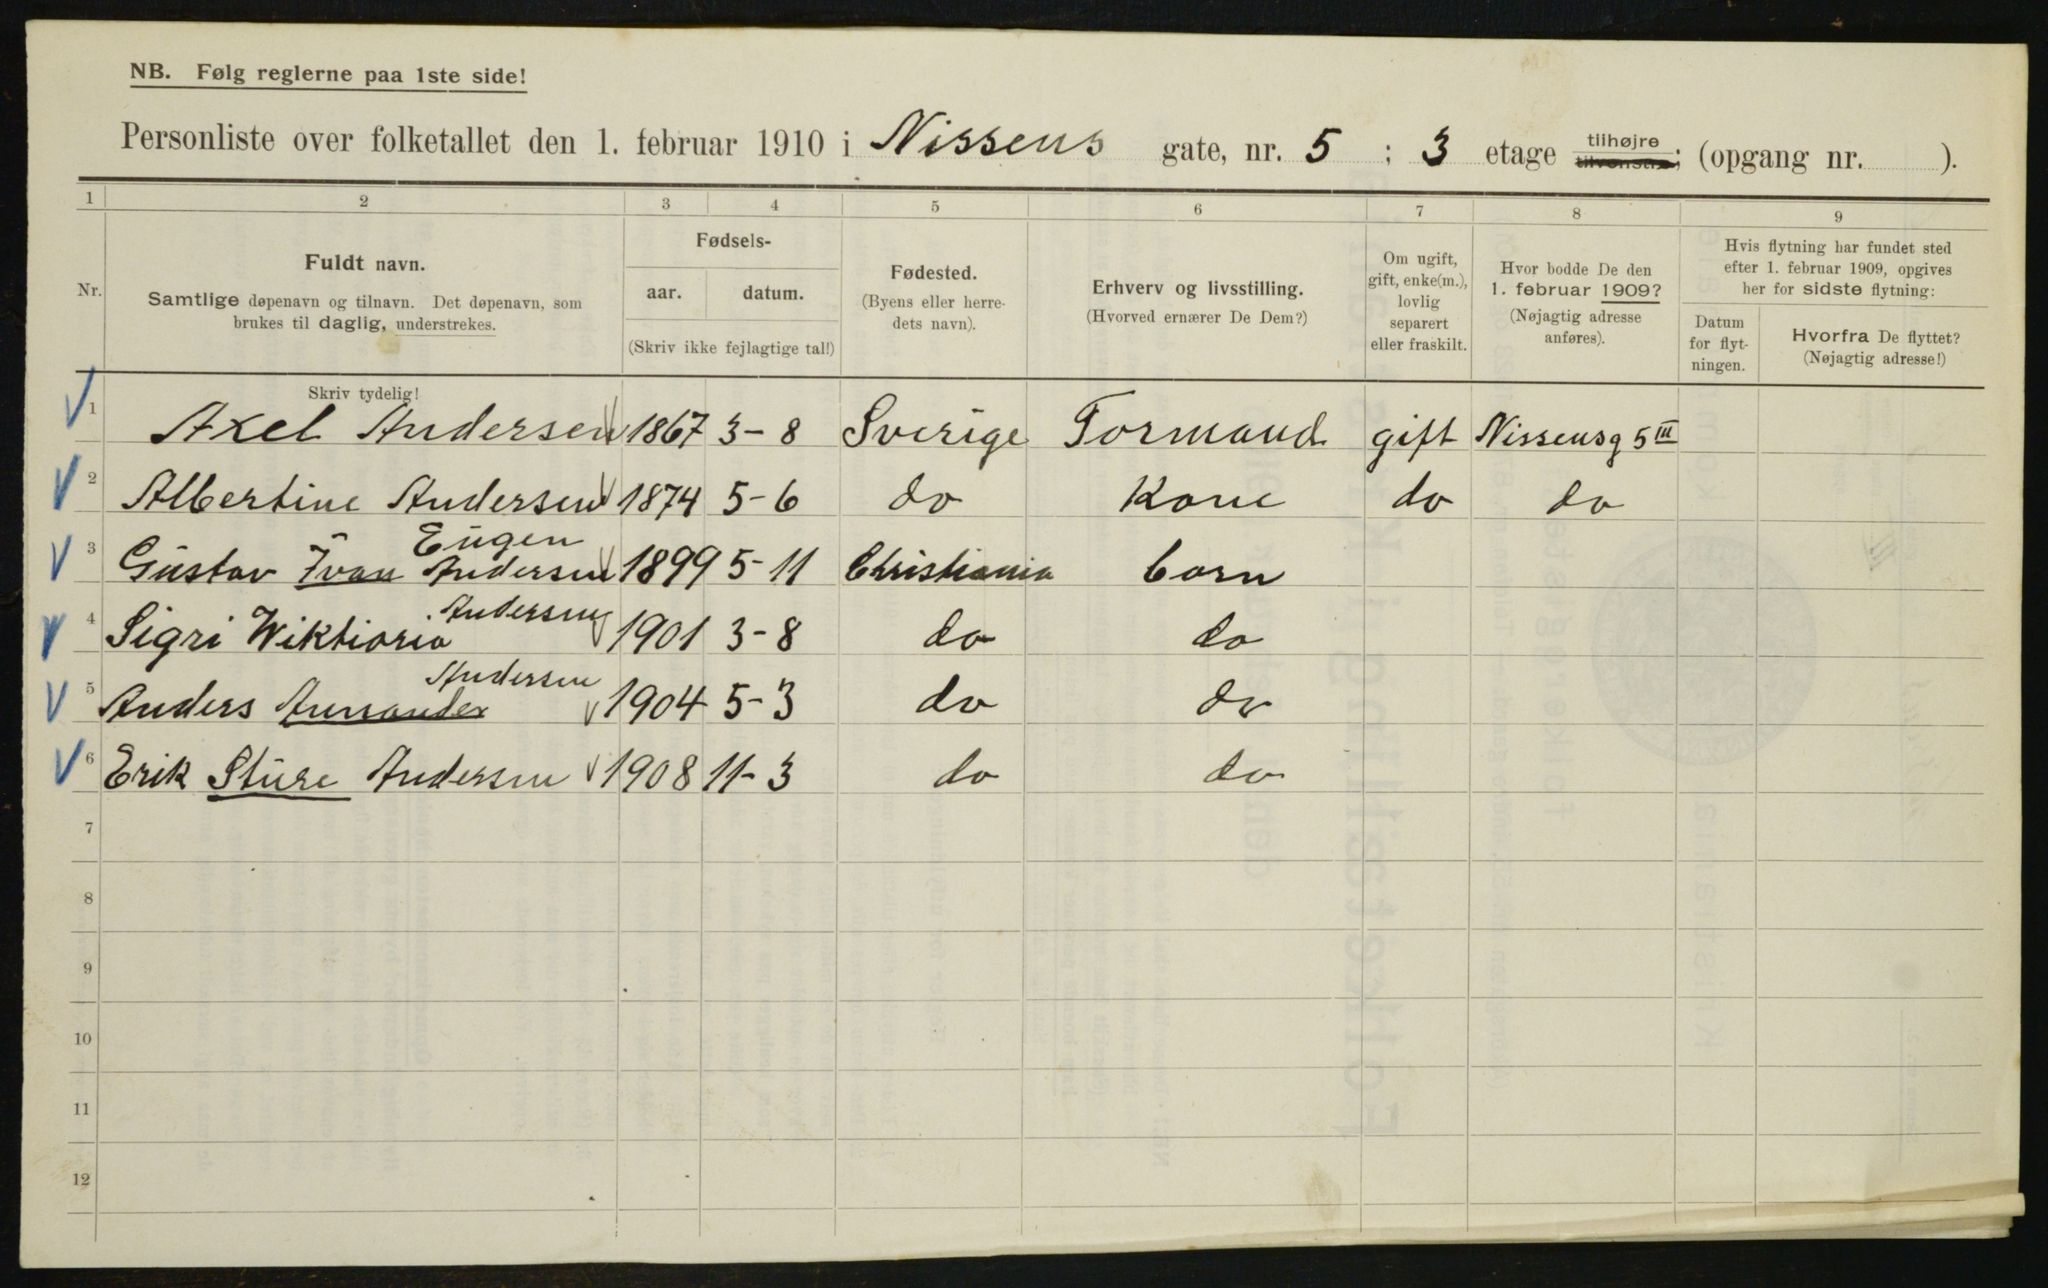 NB. Følg reglerne paa 1ste side!
Personliste over folketallet den 1. februar 1910 i Nissens gate, nr. 5 ; 3 etage tilhøjre tilvenstre; (opgang nr. ).
1 2 3 4 5 6 7 8 9
Nr.
Fuldt navn.
Samtlige døpenavn og tilnavn. Det døpenavn, som
brukes til daglig, understrekes.
Fødsels-
aar. datum.
(Skriv ikke fejlagtige tal!)
Fødested.
(Byens eller herre-
dets navn).
Erhverv og livsstilling.
(Hvorved ernærer De Dem?)
Om ugift,
gift, enke(m.),
lovlig
separert
eller fraskilt.
Hvor bodde De den
1. februar 1909?
(Nøjagtig adresse
anføres).
Hvis flytning har fundet sted
efter 1. februar 1909, opgives
her for sidste flytning:
Datum
for flyt-
ningen.
Hvorfra De flyttet?
(Nøjagtig adresse!)
Skriv tydelig!
1 Axel Andersen 1867 3-8 Sverige Formand gift Nissensg 5 III
2 Albertine Andersen 1874 5-6 do Kone do do
Eugen
3 Gustav Ivan Andersen 1899 5-11 Christiania barn
Andersen
4 Sigri Wiktioria 1901 3-8 do do
Andersen
5 Anders 1904 5-3 do do
6 Erik Sture Andersen 1908 11-3 do do
7
8
9
10
11
12